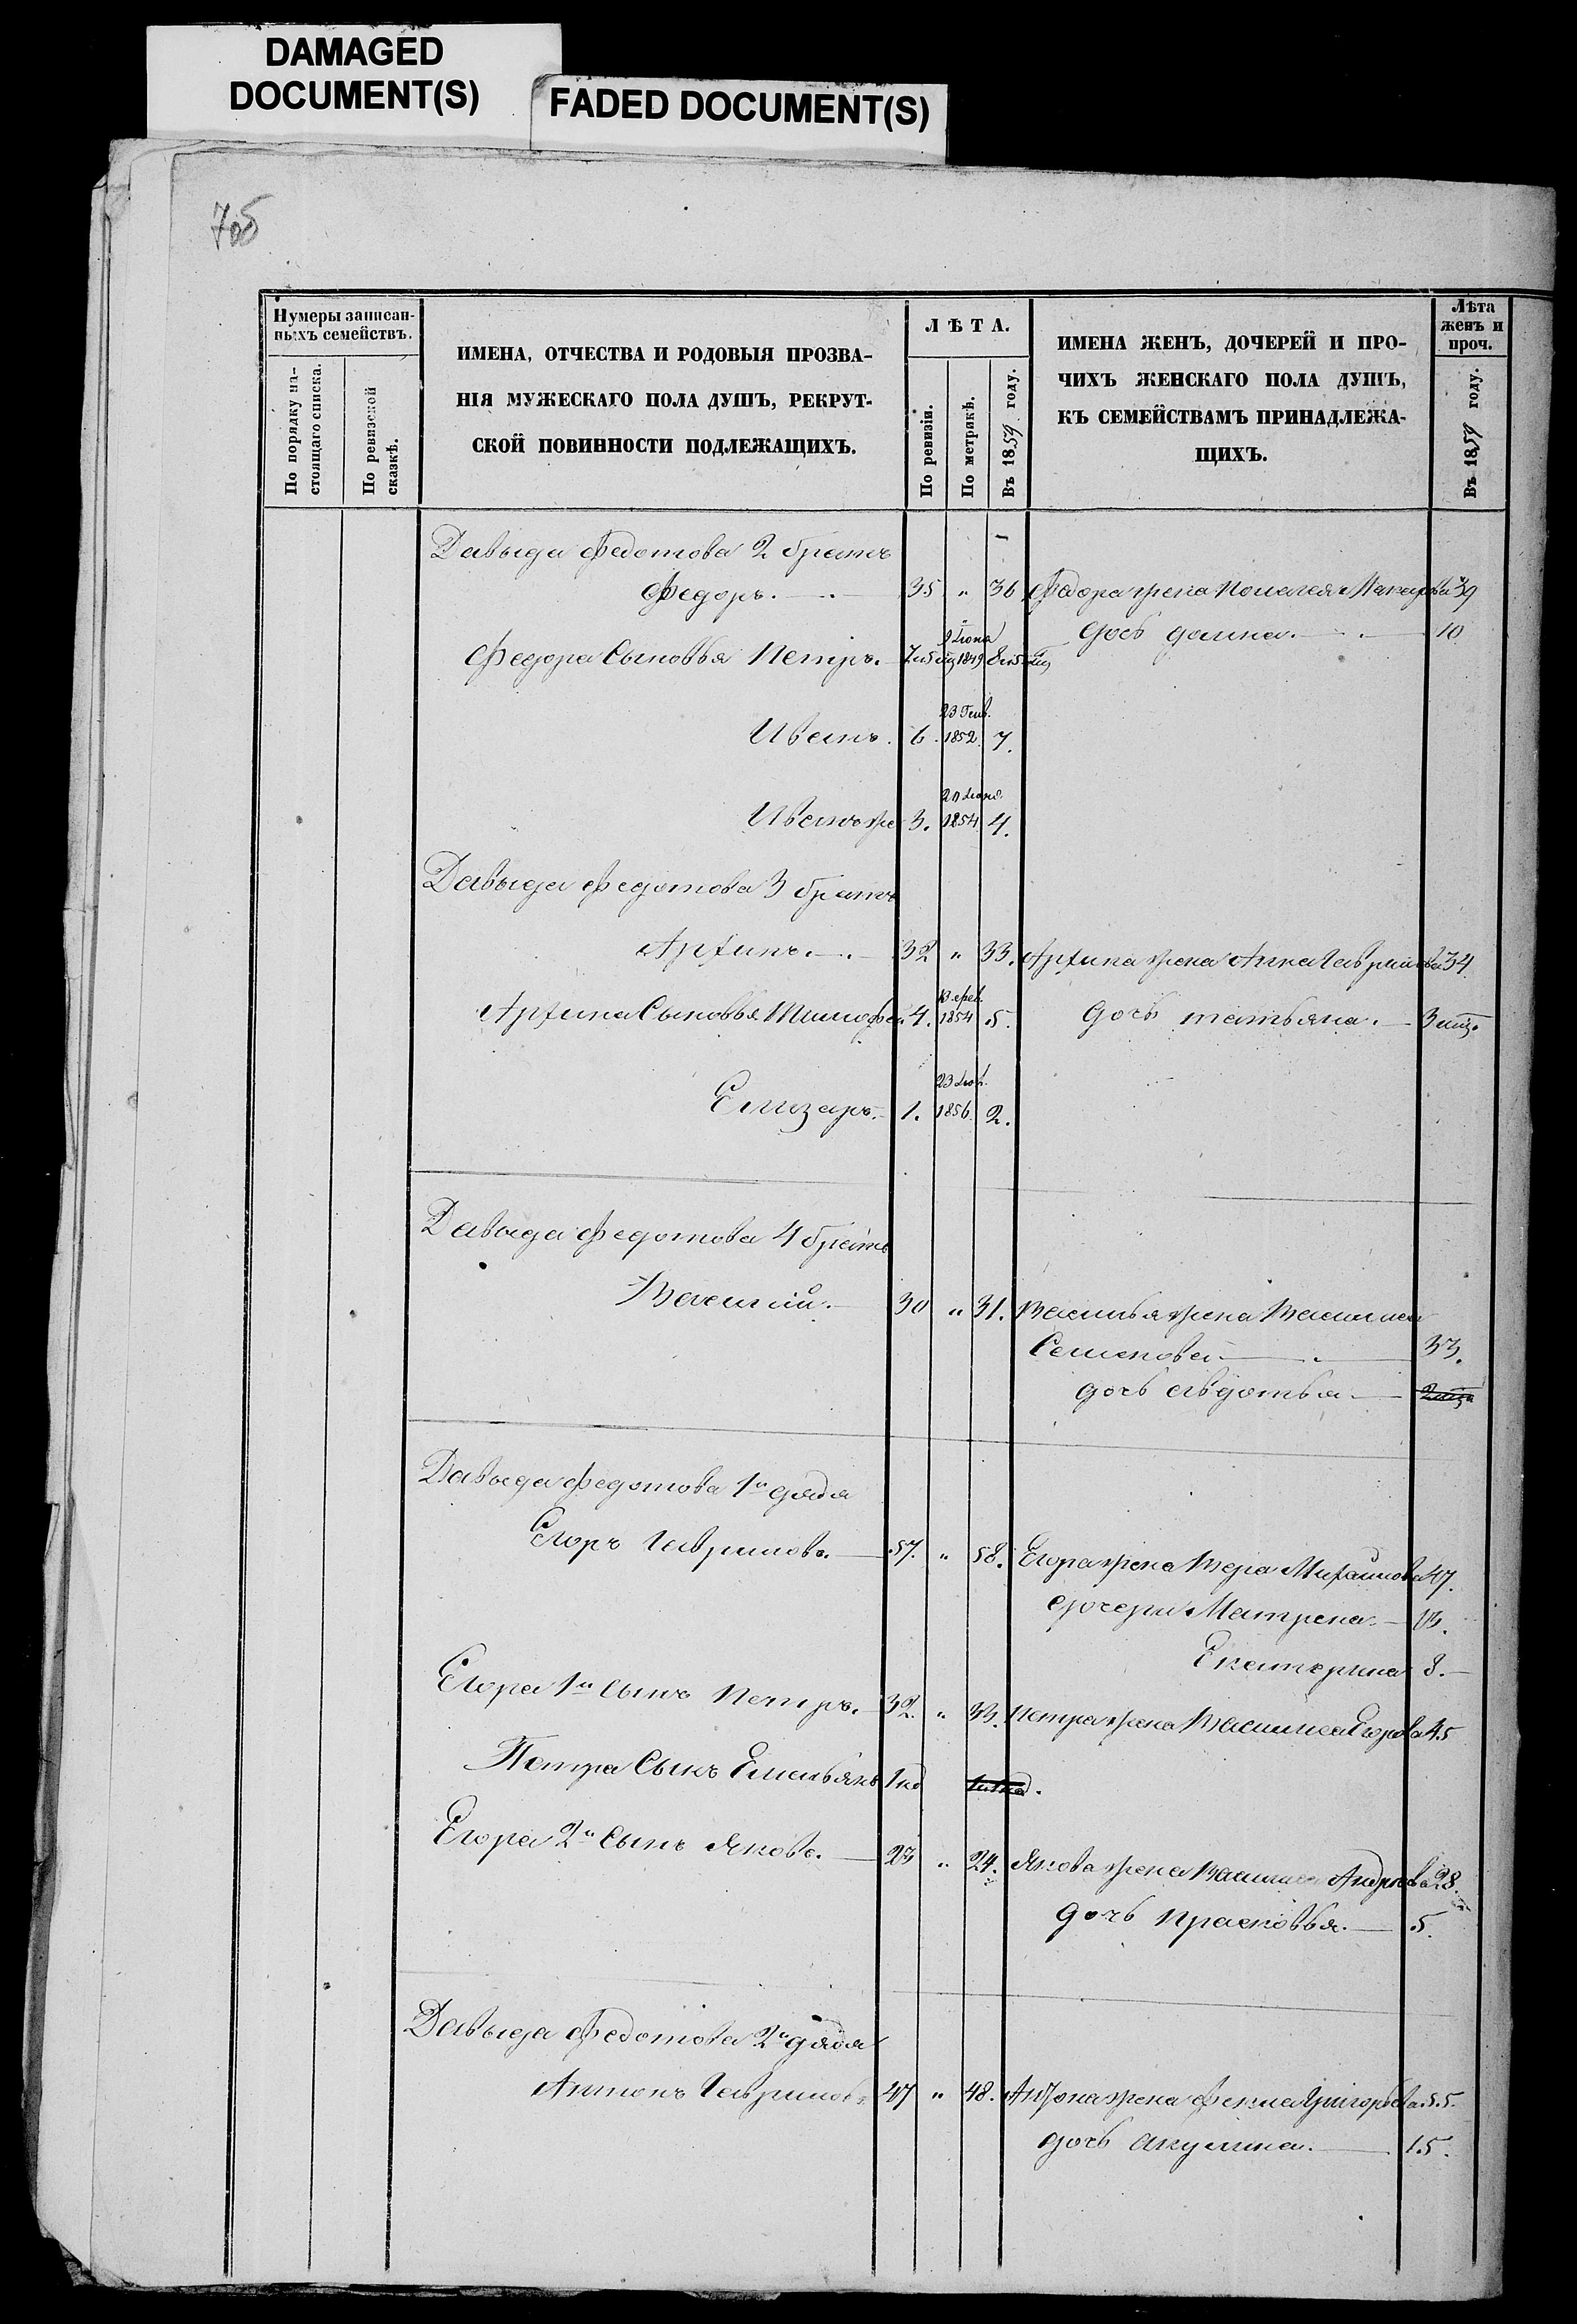 DAMAGED
DOCUMENT(S)
FADED DOCUMENT(S)
Нумеры записан-
ныхъ семействъ.
По порядку на-
стоящаго списка.
По ревизской
сказкѣ.
ИМЕНА, ОТЧЕСТВА И РОДОВЫЯ ПРОЗВА-
НІЯ МУЖЕСКАГО ПОЛА ДУШЪ, РЕКРУТ-
СКОЙ ПОВИННОСТИ ПОДЛЕЖАЩИХЪ.
ЛѢТА.
По ревизіи.
По метрикѣ.
Въ 1859 году.
ИМЕНА ЖЕНЪ, ДОЧЕРЕЙ И ПРО-
ЧИХЪ ЖЕНСКАГО ПОЛА ДУШЪ,
КЪ СЕМЕЙСТВАМЪ ПРИНАДЛЕЖА-
ЩИХЪ.
Лѣта
женъ и
проч.
Въ 1859 году.
Давыда Федотова 2 братъ
Федоръ. 35 " 36 Федора жена Пелагея Макарова 39
дочь домна. 10
Федора Сыновья Петръ. 1849
23 Генв.
Иванъ. 6. 1852 7.
Иванъ же 3. 1854 4.
Давыда Федотова 3 братъ
Архипъ. 32 " 33. Архипа жена Анна Гаврилова 34
13 фев.
Архипа Сыновья Тимофей 4. 1854 5. дочь татьяна. 3 мц.
Елизаръ. 1. 1856. 2.
Давыда Федотова 4 братъ
Василій. 30 " 31. Василья жена Василиса
Семенова 33.
дочь авдотья
Давыда Федотова 1й дядя
Егоръ Гавриловъ. 57. " 58. Егора жена Вера Михайлова 47.
дочери Матрена. 13.
Екатерина 8.
Егора 1й сынъ Петръ. 32. " 33. Петра жена Василиса Егорова 45
Петра Сынъ Емельянъ
Егора 2й Сынъ Яковъ. 23 " 24. Якова жена Василиса Андреева 28.
дочь прасковья. 5.
Давыда Федотова 2й дядя
Антонъ Гавриловъ 47 " 48. Антона жена Фекла Григорьева 55.
дочь акулина. 15.